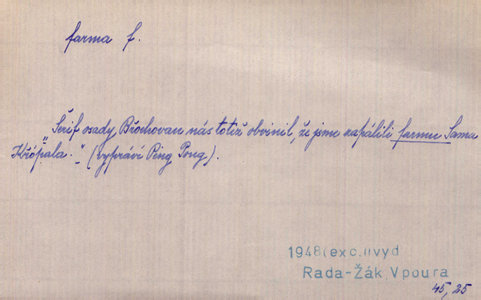 farma f.
„Šerif osady Břochovan nás totiž obvinil, že jsme zapálili farmu Sama
Křópala." (vypráví Ping Pong).
1948(exc.I)vyd
Rada-Žák, Vpoura
45, 25